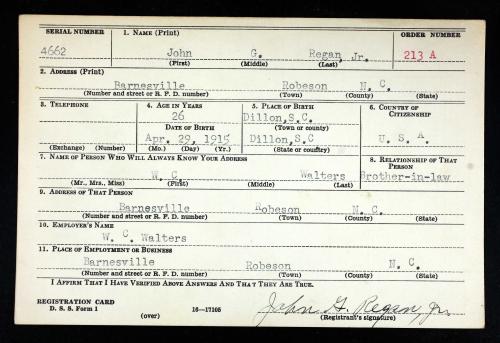 SERIAL NUMBER 1. NAME (Print) ORDER NUMBER
4662 John G. Regan, Jr. 213 A
(First) (Middle) (Last)
2. ADDRESS (Print)
Barnesville Robeson N. C.
(Number and street or R. F. D. number) (Town) (County) (State)
3. TELEPHONE 4. AGE IN YEARS 5. PLACE OF BIRTH 6. COUNTRY OF CITIZENSHIP
26 Dillon,S.C.
DATE OF BIRTH (Town or county)
Apr. 29, 1915 Dillon,S.C U. S. A.
(Exchange) (Number) (Mo.) (Day) (Yr.) (State or country)
7. NAME OF PERSON WHO WILL ALWAYS KNOW YOUR ADDRESS 8. RELATIONSHIP OF THAT PERSON
W. C Walters Brother-in-law
(Mr., Mrs., Miss) (First) (Middle) (Last)
9. ADDRESS OF THAT PERSON
Barnesville Robeson N. C.
(Number and street or R. F. D. number) (Town) (County) (State)
10. EMPLOYER'S NAME
W. C. Walters
11. PLACE OF EMPLOYMENT OR BUSINESS
Barnesville Robeson N. C.
(Number and street or R. F. D. number) (Town) (County) (State)
I AFFIRM THAT I HAVE VERIFIED ABOVE ANSWERS AND THAT THEY ARE TRUE.
REGISTRATION CARD John G. Regan, Jr.
D. S. S. Form 1 (over) 16—17105 (Registrant's signature)